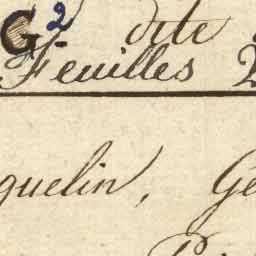 G² dite
Feuilles 2
quelin, Ge